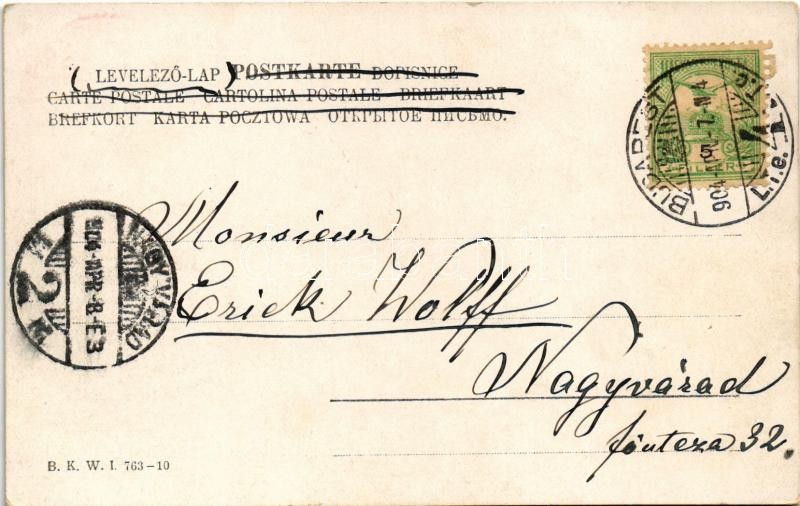 (LEVELEZŐ-LAP) POSTKARTE DOPISNICE
CARTE POSTALE CARTOLINA POSTALE BRIEFKAART
BREFKORT KARTA POCZTOWA ОТКРЫТОЕ ПИСЬМО.
5
FILLÉR
BUDAPEST
904
NAGY-VÁRAD
904 APR -8
M 2 M
Monsieur
Erick Wolff
Nagyvárad
főutcza 32.
B. K. W. I. 763-10